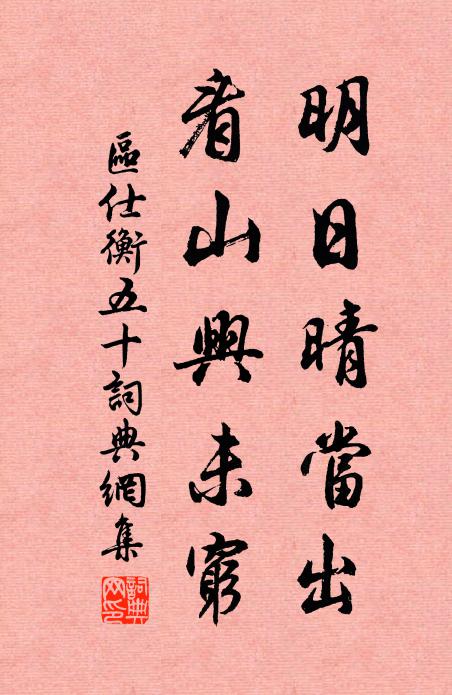 明日晴當出
看山興未窮
區仕衡五十詞典網集
詞典網印